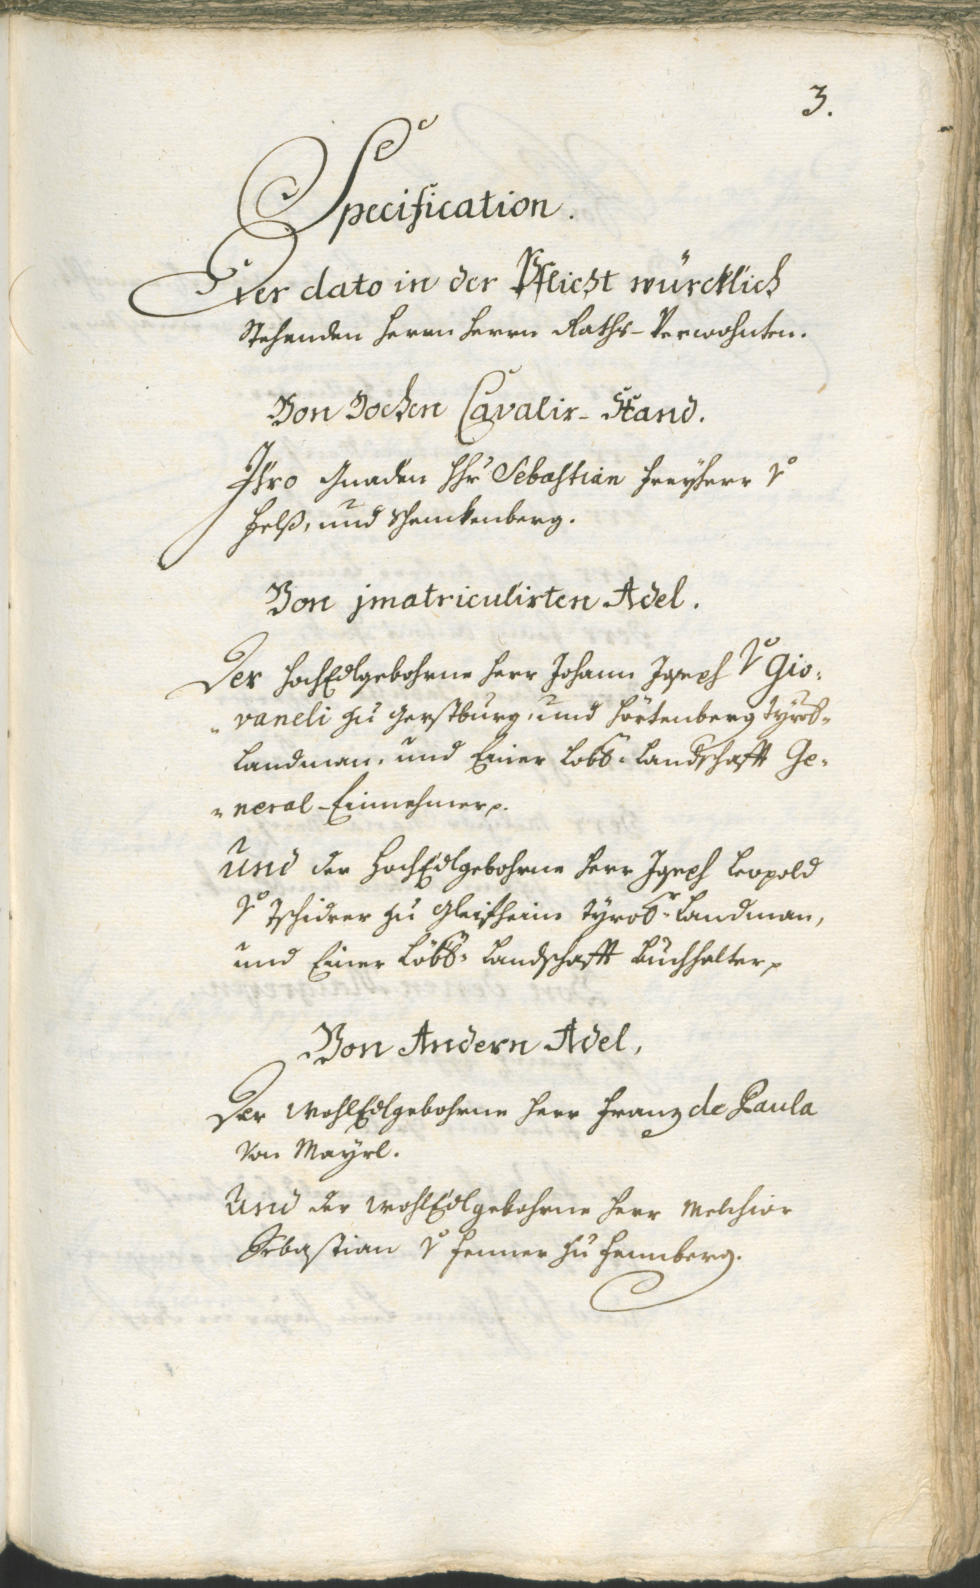 3.
Specification.
Der dato in der Pflicht würcklich
Stehenden Herrn Herrn Raths-Verwohnten.
Von Hochen Cavalir-Stand.
Ihro Gnaden Hhr Sebastian Freyherr v
Helß, und Schenckenberg.
Von jmatriculirten Adel.
Der HochEdlgebohrne Herr Johann Joseph v Gio„
„vaneli zu Gerstburg, und Hörtenberg Tyroll„
Landman, und Einer Löbl: Landschafft Ge„
„neral-Einnehmer p.
Und der HochEdlgebohrne Herr Joseph Leopold
v Tschidrer zu Gleifheim Tyroll: Landman,
und Einer Löbl: Landschafft Buchhalter p
Von Andern Adel,
Der WohlEdlgebohrne Herr Franz de Paula
Von Mayrl.
Und der WohlEdlgebohrne Herr Melchior
Sebastian v Fenner zu Fennberg.